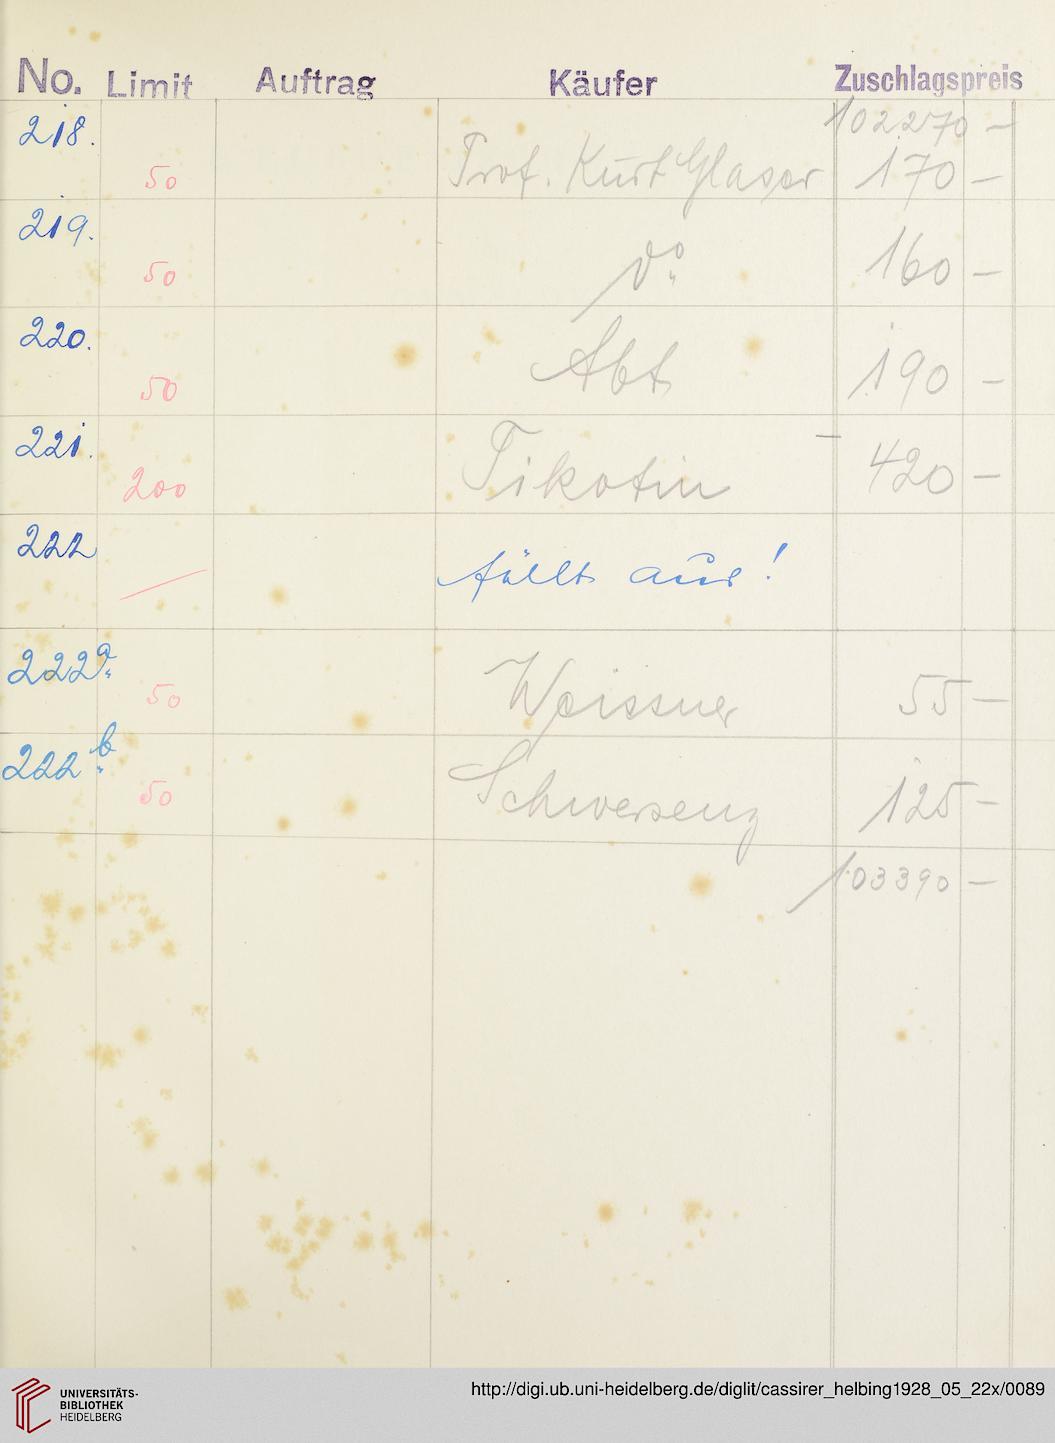 No. Limit Auftrag Käufer Zuschlagspreis
102270 –
218. 50 Prof. Kurt Glaser 170 –
219. 50 do 160 –
220. 50 Abt 190 –
221. 200 Tikotin 420 –
222 fällt aus!
222a. 50 Weissner 55 –
222b. 50 Schwersenz 125 –
103390 –
UNIVERSITÄTS-
BIBLIOTHEK
HEIDELBERG
http://digi.ub.uni-heidelberg.de/diglit/cassirer_helbing1928_05_22x/0089